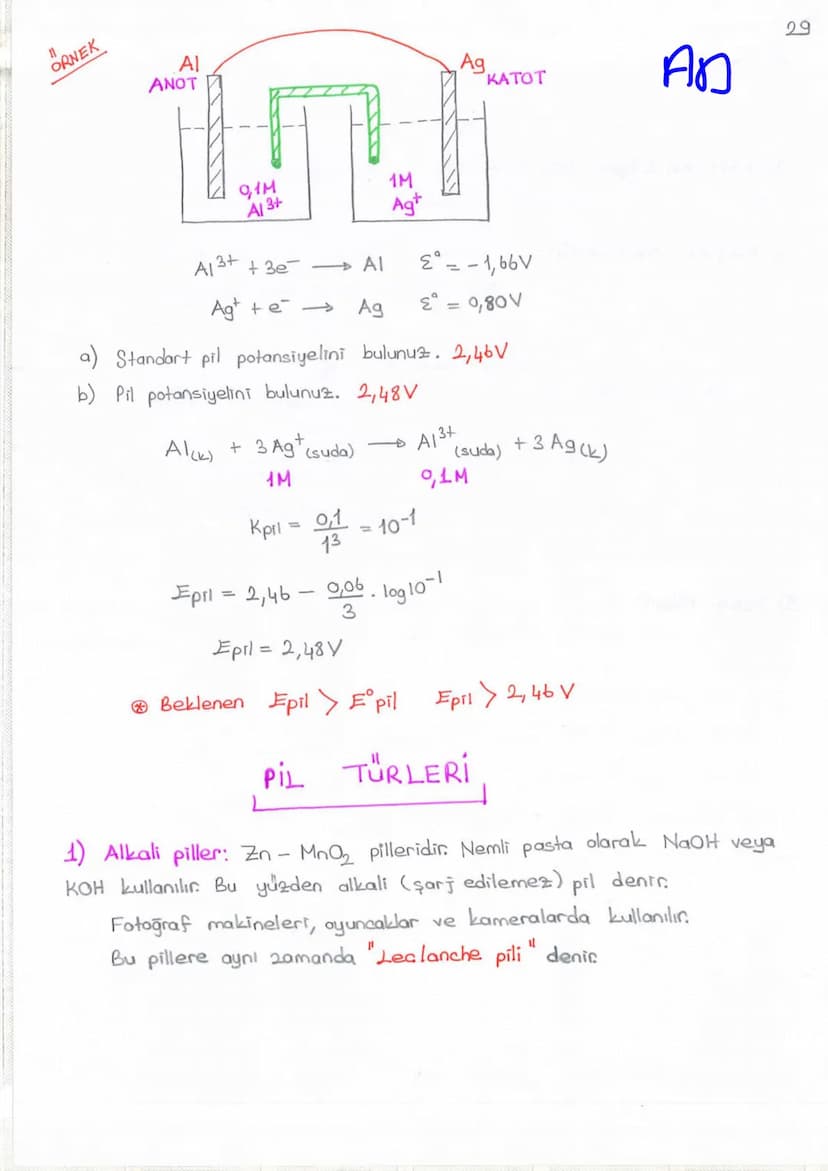 29
ÖRNEK
Al
ANOT
Ag
KATOT
0,1M
Al³⁺
1M
Ag⁺
Al³⁺ + 3e⁻ → Al Ɛ° = -1,66V
Ag⁺ + e⁻ → Ag Ɛ° = 0,80V
a) Standart pil potansiyelini bulunuz. 2,46V
b) Pil potansiyelini bulunuz. 2,48V
Al(k) + 3Ag⁺(suda) → Al³⁺(suda) + 3Ag(k)
1M 0,1M
Kpil = 0,1/1³ = 10⁻¹
Epil = 2,46 - 0,06/3 . log10⁻¹
Epil = 2,48V
⊛ Beklenen Epil > E°pil Epil > 2,46V
PİL TÜRLERİ
1) Alkali piller: Zn - MnO₂ pilleridir. Nemli pasta olarak NaOH veya
KOH kullanılır. Bu yüzden alkali (şarj edilemez) pil denir.
Fotoğraf makineleri, oyuncaklar ve kameralarda kullanılır.
Bu pillere aynı zamanda "Leclanche pili" denir.